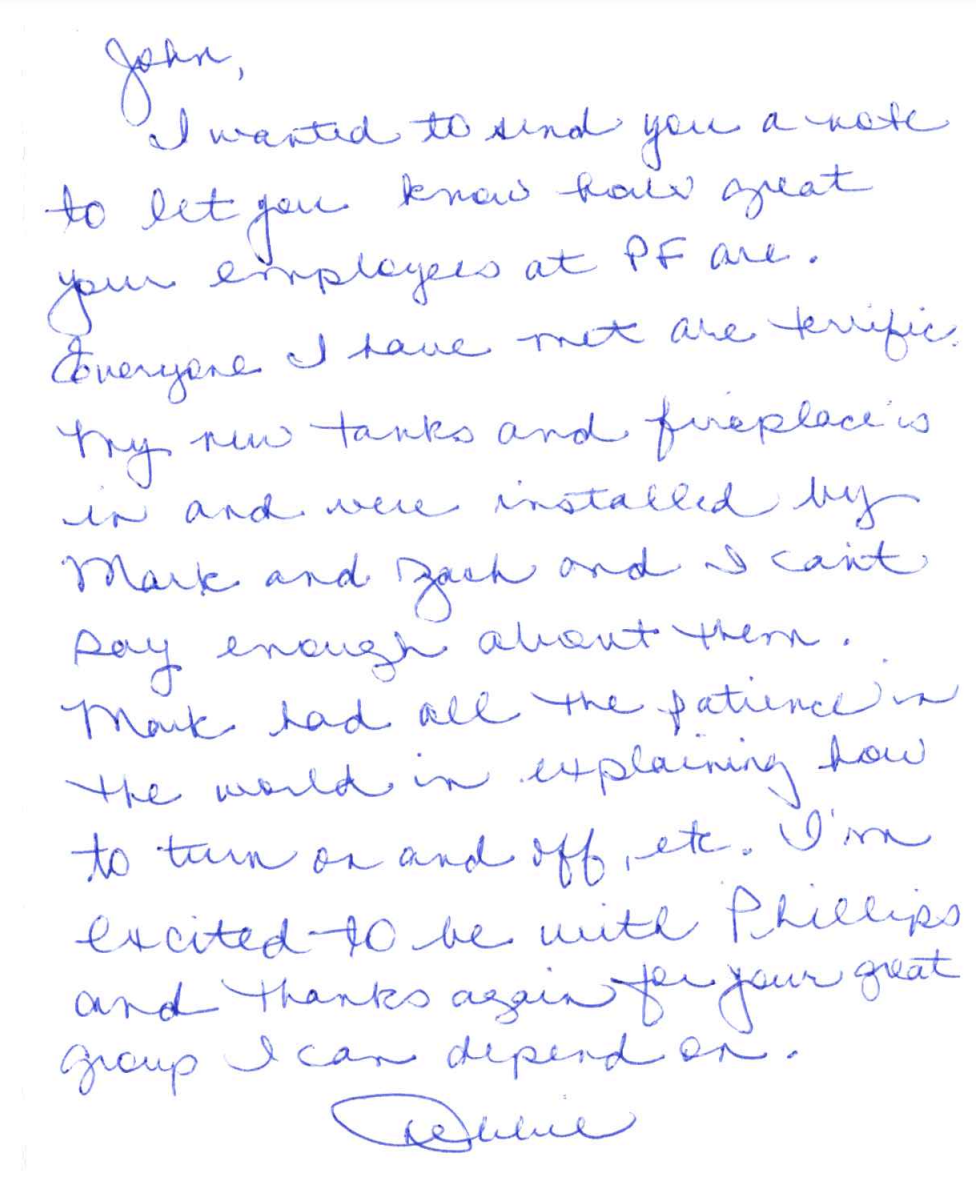 John,
I wanted to send you a note
to let you know how great
your employees at PF are.
Everyone I have met are terrific.
My new tanks and fireplace is
in and were installed by
Mark and Zach and I can't
say enough about them.
Mark had all the patience in
the world in explaining how
to turn on and off, etc. I'm
excited to be with Phillips
and thanks again for your great
group I can depend on.
Debbie